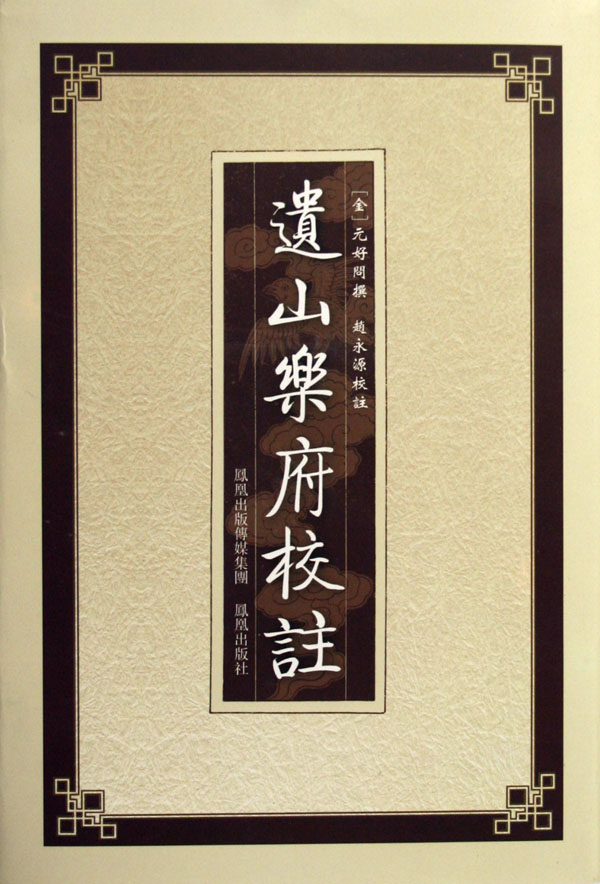 ［金］元好問撰　趙永源校註
遺山樂府校註
鳳凰出版傳媒集團　鳳凰出版社